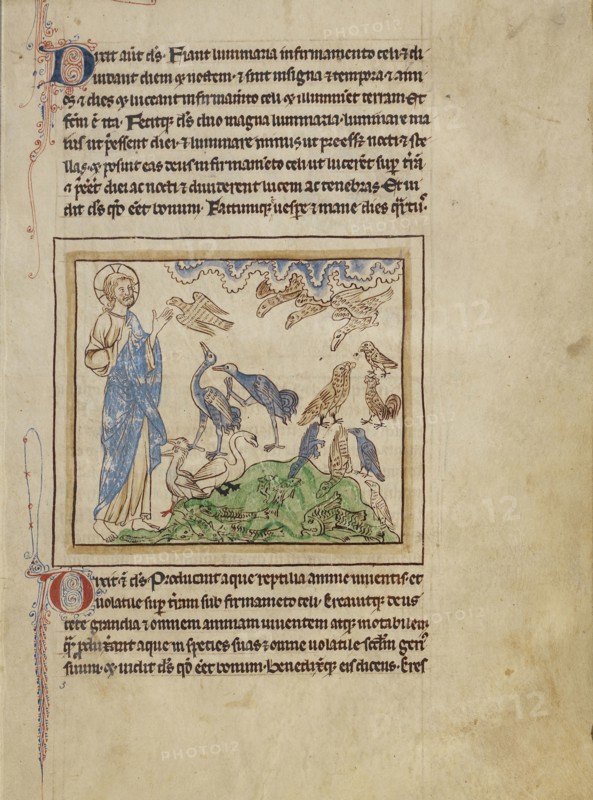 Dixit aut ds. Fiant luminaria in firmamento celi ⁊ di
uidant diem ⁊ noctem. ⁊ sint in signa ⁊ tempora ⁊ ann
os ⁊ dies ⁊ luceant in firmamto celi ⁊ illuminet terram Et
fcm ē ita. Fecitq ds duo magna luminaria. luminare ma
ius ut pessent diei. ⁊ luminare minus ut preesset nocti ⁊ ste
llas. ⁊ posuit eas deus in firmamēto celi ut lucerēt sup trā
⁊ pēēt diei ac nocti ⁊ diuiderent lucem ac tenebras. Et ui
dit ds qđ ēēt bonum. Factumq uespe ⁊ mane dies qrtus.
Dixit ē ds Producant aque reptilia anime uiuentis et
uolatile sup trām sub firmameto celi. Creauitq deus
cete grandia ⁊ omnem animam uiuentem atq motabilem
qm pduxerant aque in species suas ⁊ omne uolatile scdm gen
suum. ⁊ uidit ds qđ ēēt bonum. benedixitq eis dicens. Cres
PHOTO12